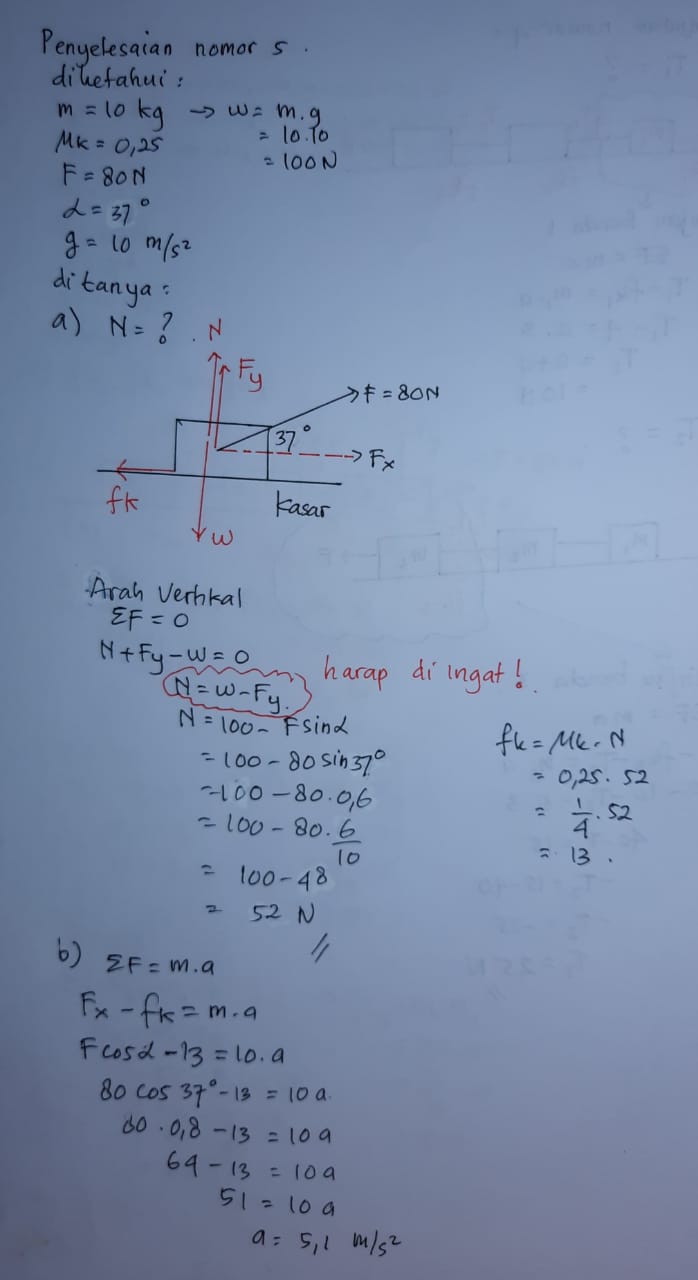 Penyelesaian nomor 5.
diketahui :
m = 10 kg → w = m.g
= 10.10
= 100N
Mk = 0,25
F = 80N
α = 37°
g = 10 m/s²
ditanya :
a) N = ?
N
Fy
F = 80N
37°
Fx
fk
kasar
w
Arah Vertikal
ΣF = 0
N + Fy - w = 0
N = w - Fy.
harap di ingat!
N = 100 - F sinα
= 100 - 80 sin 37°
= 100 - 80.0,6
= 100 - 80. 6/10
= 100 - 48
= 52 N
fk = Mk. N
= 0,25. 52
= 1/4 . 52
= 13 .
b) ΣF = m.a
Fx - fk = m.a
F cosα - 13 = 10.a
80 cos 37° - 13 = 10 a.
80 . 0,8 - 13 = 10 a
64 - 13 = 10 a
51 = 10 a
a = 5,1 m/s²